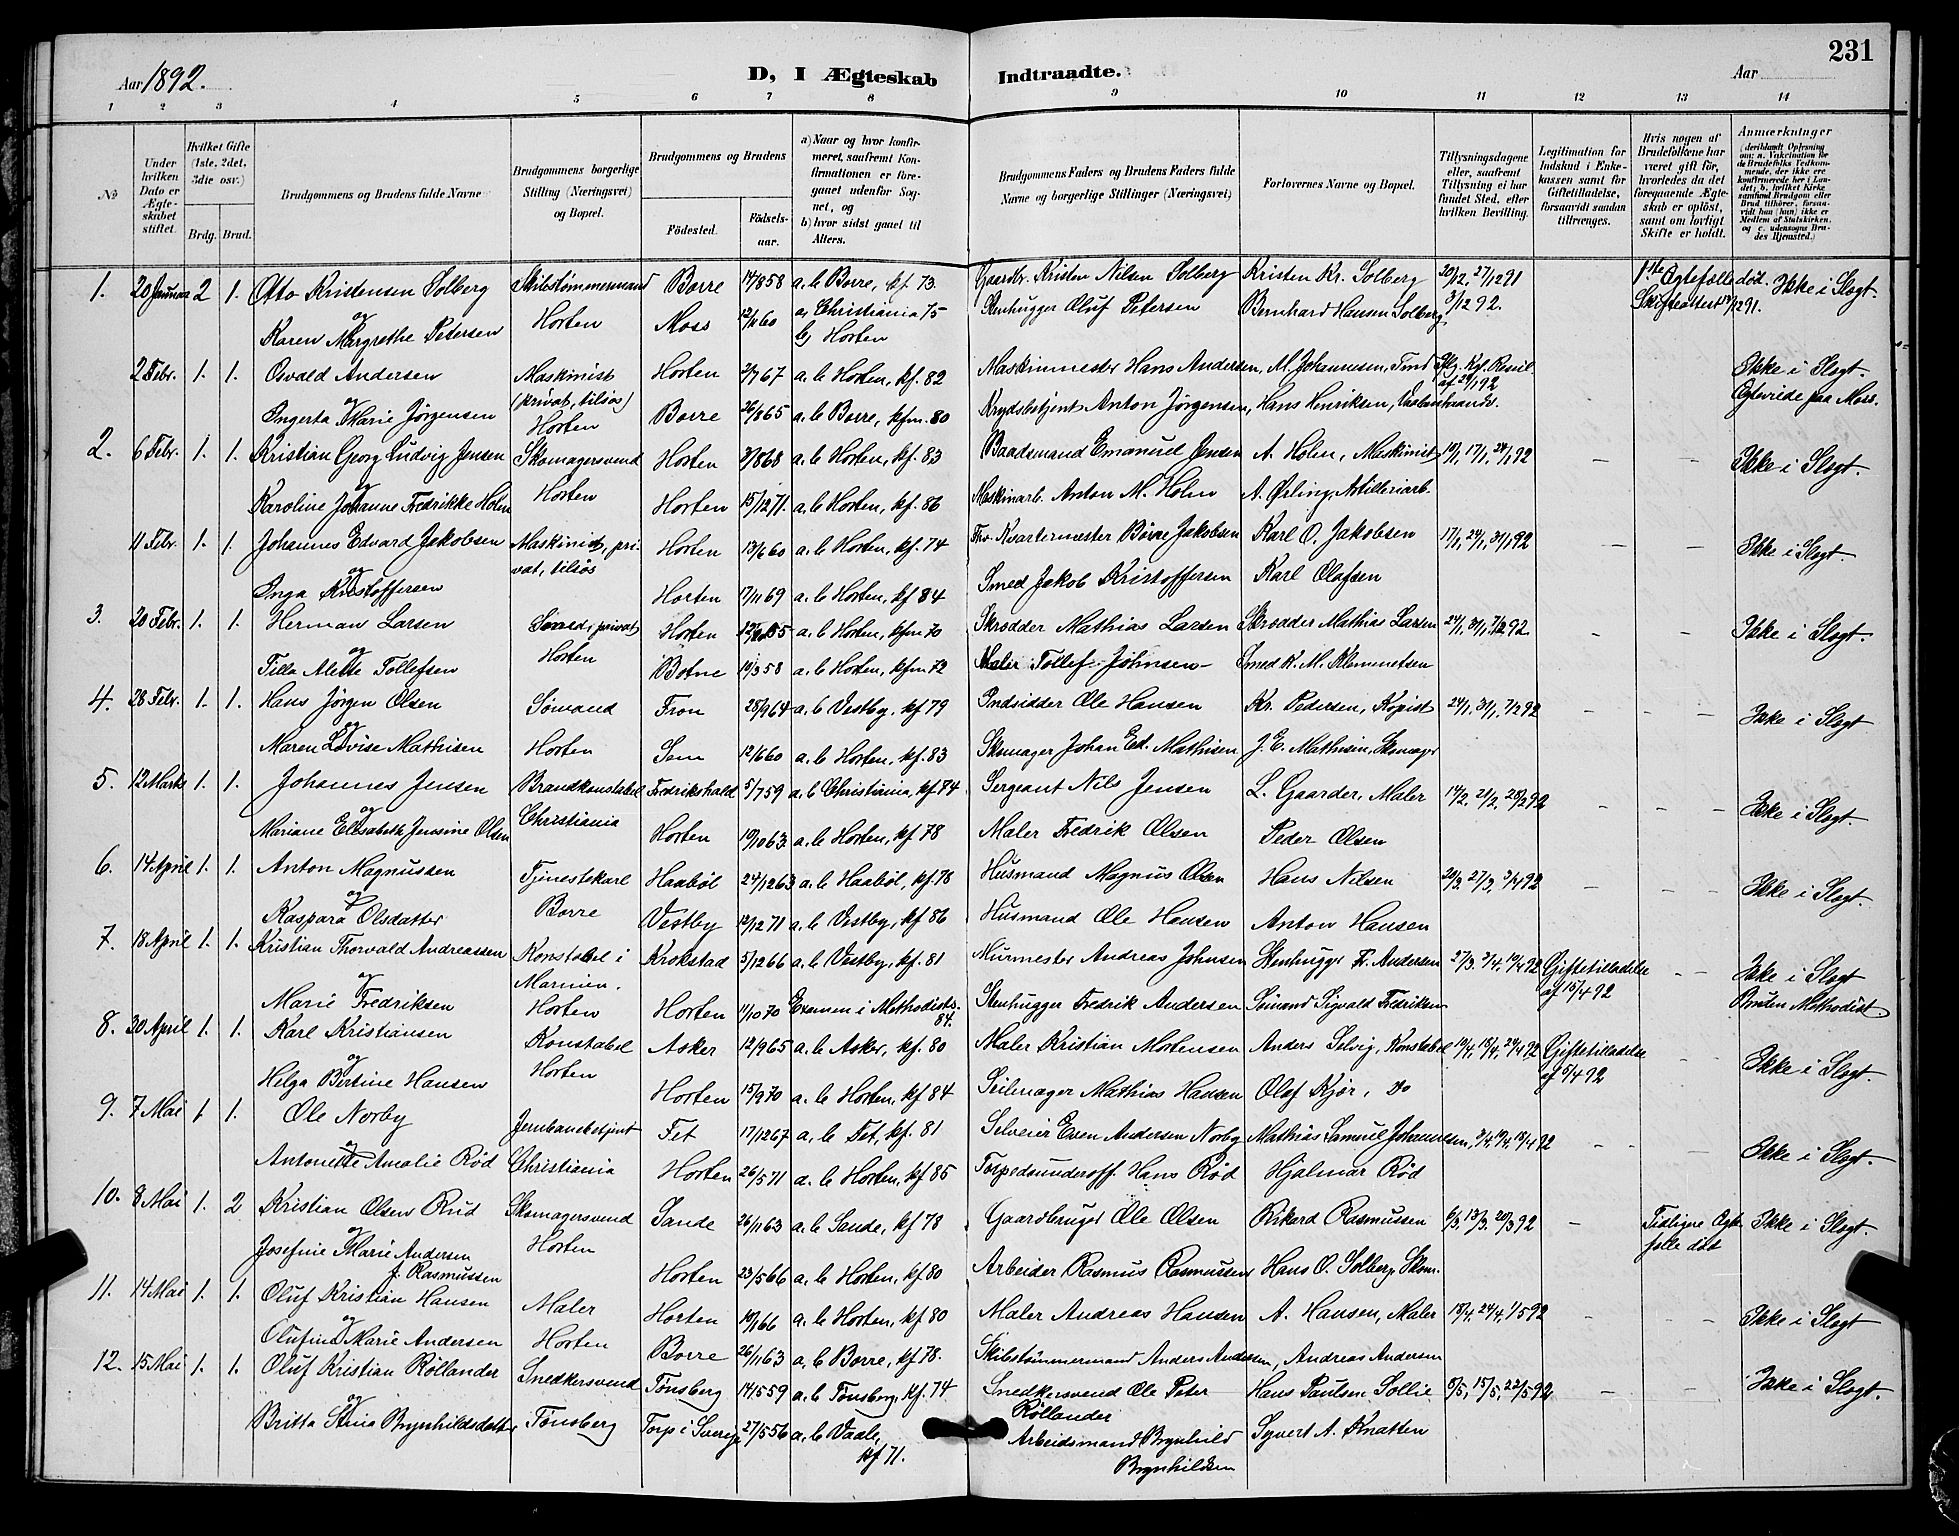 231
Aar 1892.
D, I Ægteskab Indtraadte.
Aar
1 2 3 4 5 6 7 8 9 10 11 12 13 14
No
Under hvilken Dato er Ægteskabet stiftet.
Hvilket Gifte (1ste, 2det, 3die osv.)
Brdg. Brud.
Brudgommens og Brudens fulde Navne
Brudgommens borgerlige Stilling (Næringsvei) og Bopæl.
Brudgommens og Brudens
Födested.
Födselsaar.
a) Naar og hvor konfirmeret, saafremt Konfirmationen er foregaaet udenfor Sognet, og
b) hvor sidst gaaet til Alters.
Brudgommens Faders og Brudens Faders fulde Navne og borgerlige Stillinger (Næringsvei)
Forlovernes Navne og Bopæl.
Tillysningsdagene eller, saafremt Tillysning ei har fundet Sted, efter hvilken Bevilling.
Legitimation for Indskud i Enkekassen samt for Giftetilladelse, forsaavidt saadan tiltrænges.
Hvis nogen af Brudefolkene har været gift för, hvorledes da det foregaaende Ægteskab er oplöst, samt om lovligt Skifte er holdt.
Anmærkninger (deriblandt Oplysning om: a. Vakcination for de Brudefolks Vedkommende, der ikke ere konfirmerede her i Landet; b. hvilket Kirkesamfund Brudgom eller Brud tilhörer, forsaavidt han (hun) ikke er Medlem af Statskirken, og c. udensogns Brudes Hjemsted.)
1. 20 Januar 2 1. Otto Kristensen Solberg Skibstømmermand Borre 14/8 58 a.b. Borre, kf. 73. Gaardbr. Kristen Nilsen Solberg Kristen Kr. Solberg 20/12, 27/12 91 1ste Ægtefælle død. Ikke i Slegt.
og Horten 3/12 92. Skifteattest
Karen Margrethe Petersen Moss 12/11 60 a, Christiania 75 b, Horten Stenhugger Oluf Petersen Bernhard Hansen Solberg
2 Febr. 1. 1. Osvald Andersen Maskinist (privat, tilsøs) Horten Horten 2/7 67 a.b Horten, kf. 82 Maskinmester Hans Andersen, M. Johannesen, Tmd Ikke i Slegt.
og
Ingerta Marie Jørgensen Borre 26/8 65 a.b. Borre, kfm. 80 Krydsbetjent Anton Jørgensen, Hans Henriksen, Ægtevide paa Moss.
2. 6 Febr. 1. 1. Kristian Georg Ludvig Jensen Skomagersvend Horten 3/8 68 a.b Horten, kf. 83 Baadsmand Emanuel Jensen A. Holm, Maskinist 10/1, 17/1, 24/1 92 – – Ikke i Slegt.
og Horten
Karoline Johanne Fredrikke Holm Horten 15/12 71. a.b. Horten, kf. 86 Maskinarb. Anton M. Holm A. Ørling, Artilleriarb.
11 Febr. 1. 1. Johannes Edvard Jakobsen Maskinist, privat, tilsøs Horten 13/6 60 a.b. Horten, kf. 74 Fhv. Kvartermester Børre Jakobsen Karl O. Jakobsen 17/1, 24/1, 31/1 92 – – Ikke i Slegt.
og
Inga Kristoffersen Horten 7/11 69 a.b Horten, kf 84 Smed Jakob Kristoffersen Karl Olafsen
3. 20 Febr. 1. 1. Herman Larsen Smed, privat Horten a.b Horten, kfm 70 Skrædder Mathias Larsen Skrædder Mathias Larsen 24/1, 31/1, 7/2 92 – – Ikke i Slegt.
og Horten
Tilla Alette Tollefsen Botne 10/3 58 a.b Horten, kfm 72 Maler Tollef Johnsen – Smed K. M. Klemmetsen
4. 28 Febr. 1. 1. Hans Jørgen Olsen Sømand Fron 28/9 64 a.b Vestby, kf 79 Indsidder Ole Hansen Kr. Pedersen, Kopist 24/1, 31/1, 7/2 92 – – – Ikke i Slegt.
og
Maren Lovise Mathisen Horten Sem 12/6 60 a.b. Horten, kf. 83 Skomager Johan Ed. Mathisen J. E. Mathisen, Skomager
5. 12 Marts 1. 1. Johannes Jensen Brandkonstabel Fredrikshald 5/7 59 a.b Christiania, kf. 74 Sergeant Nils Jensen L. Gaarder, Maler 14/2, 21/2, 28/2 92 – – – Ikke i Slegt.
og Christiania
Mariane Elisabeth Jensine Olsen Horten 10/10 63 a.b. Horten, kf 78 Maler Fredrik Olsen Peder Olsen
6. 14 April 1. 1. Anton Magnussen Tjenestekarl Haabøl 24/12 63 a.b Haabøl, kf. 78 Husmand Magnus Olsen Hans Nilsen 20/3, 27/3, 3/4 92 – – – Ikke i Slegt.
og Borre
Kaspara Olsdatter Vestby 12/12 71 a.b. Vestby, kf 86 Husmand Ole Hansen Anton Hansen
7. 18 April 1. 1. Kristian Thorvald Andreassen Konstabel i Marinen. Krokstad 5/12 66 a.b. Vestby, kf. 81 Murmester Andreas Johnsen Stenhugger Fr. Andersen 27/3, 3/4, 10/4 92 Giftetilladelse af 15/4 92 – – Ikke i Slegt
og Bruden Methodist.
Marie Fredriksen Horten Horten 11/10 70 Examen i Methodists. 84. Stenhugger Fredrik Andersen Sømand Sigvald Fredriksen
8. 30 April 1. 1. Karl Kristiansen Konstabel Asker 12/9 65 a.b. Asker, kf. 80 Maler Kristian Mortensen Anders Selvig, Konstabel 10/4, 18/4, 24/4 92 Giftetilladelse af 5/4 92 – – Ikke i Slegt.
og Horten
Helga Bertine Hansen Horten 15/9 70 a. b Horten, kf 84 Seilmager Mathias Hansen Olaf Kjør, do
9. 7 Mai 1 1. Ole Norby Jernbanebetjent Fet 17/12 67 a.b Fet, kf. 81 Selveier Even Andersen Norby Mathias Samuel Johannesen, 3/4, 10/4, 18/4 92 – – Ikke i Slegt.
og
Antonette Amalie Rød Christiania Horten 26/5 71 a. b Horten, kf 85 Torpedounderoff. Hans Rød Hjalmar Rød
10. 8 Mai 1. 2 Kristian Olsen Rud Skomagersvend Sande 26/11 63 a.b Sande, kf 78 Gaardbruger Ole Olsen Rikard Rasmussen 6/3, 13/3, 20/3 92 – Tidligere Ægtefælle død Ikke i Slegt.
og Horten
Josefine Marie Andersen f. Rasmussen Horten 23/5 66 a.b Horten, kf 80 Arbeider Rasmus Rasmussen Hans O. Solberg, Skom.
11. 14 Mai 1. 1. Oluf Kristian Hansen Maler Horten 10/1 66 a.b Horten, kf 80 Maler Andreas Hansen A. Hansen, Maler 18/4, 24/4, 1/5 92 – – – Ikke i Slegt
og
Olufine Marie Andersen Horten Borre 26/11 63 a.b Borre, kf 78. Skibstømmermand Anders Andersen, Andreas Andersen
12. 15 Mai 1. 1. Oluf Kristian Røllander Snedkersvend Tønsberg 14/5 59 a.b. Tønsberg, kf. 74 Snedkersvend Ole Peter Røllander Hans Paulsen Sollie 8/5, 15/5, 22/5 92 – – Ikke i Slegt.
og
Britta Stina Brynhildsdatter Tønsberg Torp i Sverige 27/5 56 a.b Vaale, kf 71. Arbeidsmand Brynhild Brynhildsen Syvert A. Knatten